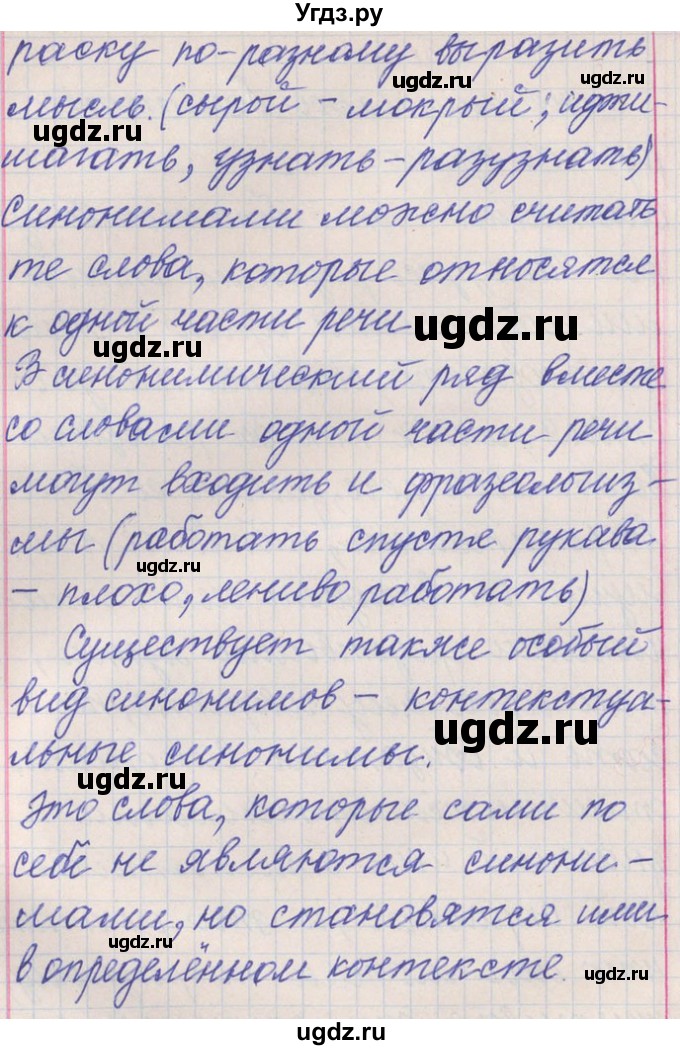 Угдз.ру
раску по-разному выразить
мысль. (сырой - мокрый; идти-
ugdz.ru
ugdz.ru
шагать, узнать - разузнать)
Синонимами можно считать
те слова, которые относятся
к одной части речи
ugdz.ru
ugdz.ru
В синонимический ряд вместе
со словами одной части речи
могут входить и фразеологиз-
мы (работать спустя рукава
ugdz.ru
- плохо, лениво работать)
Существует также особый
вид синонимов - контекстуа-
ugdz.ru
льные синонимы.
ugdz.ru
Это слова, которые сами по
себе не являются синони-
мами, но становятся ими
ugdz.ru
в определённом контексте.
ugdz.ru
ugdz.ru